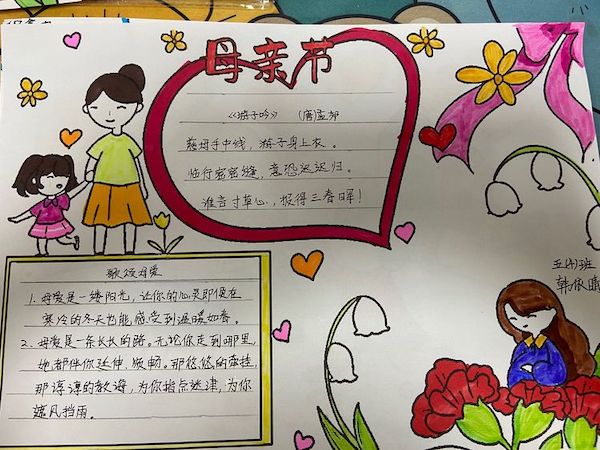 母亲节
《游子吟》 (唐孟郊
慈母手中线，游子身上衣。
临行密密缝，意恐迟迟归。
谁言寸草心，报得三春晖！
歌颂母爱
1.母爱是一缕阳光，让你的心灵即便在
寒冷的冬天也能感受到温暖如春。
2.母爱是一条长长的路。无论你走到哪里，
她都伴你延伸、顺畅。那悠悠的牵挂，
那谆谆的教诲，为你指点迷津，为你
遮风挡雨。
五(4)班
韩依晴